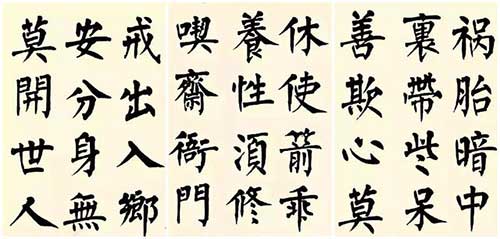 祸胎暗中
裏帶些呆
善欺心莫
休使箭乖
養性須修
喫齋衙門
戒出入鄉
安分身無
莫開世人